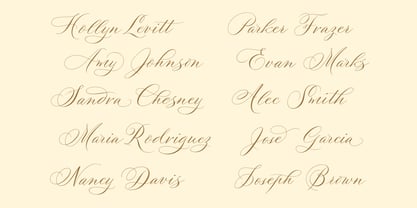 Hollyn Levitt
Parker Frazer
Amy Johnson
Evan Marks
Sandra Chesney
Alec Smith
Maria Rodriguez
José Garcia
Nancy Davis
Joseph Brown